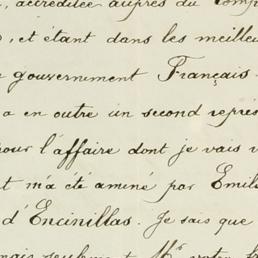 , accréditée auprès du Comp
, et étant dans les meilleu
gouvernement Français.
a en outre un second représ
pour l'affaire dont je vais v
t m'a été aminé par Emil
d'Encinillas. Je sais que
mais seulement Mr votre